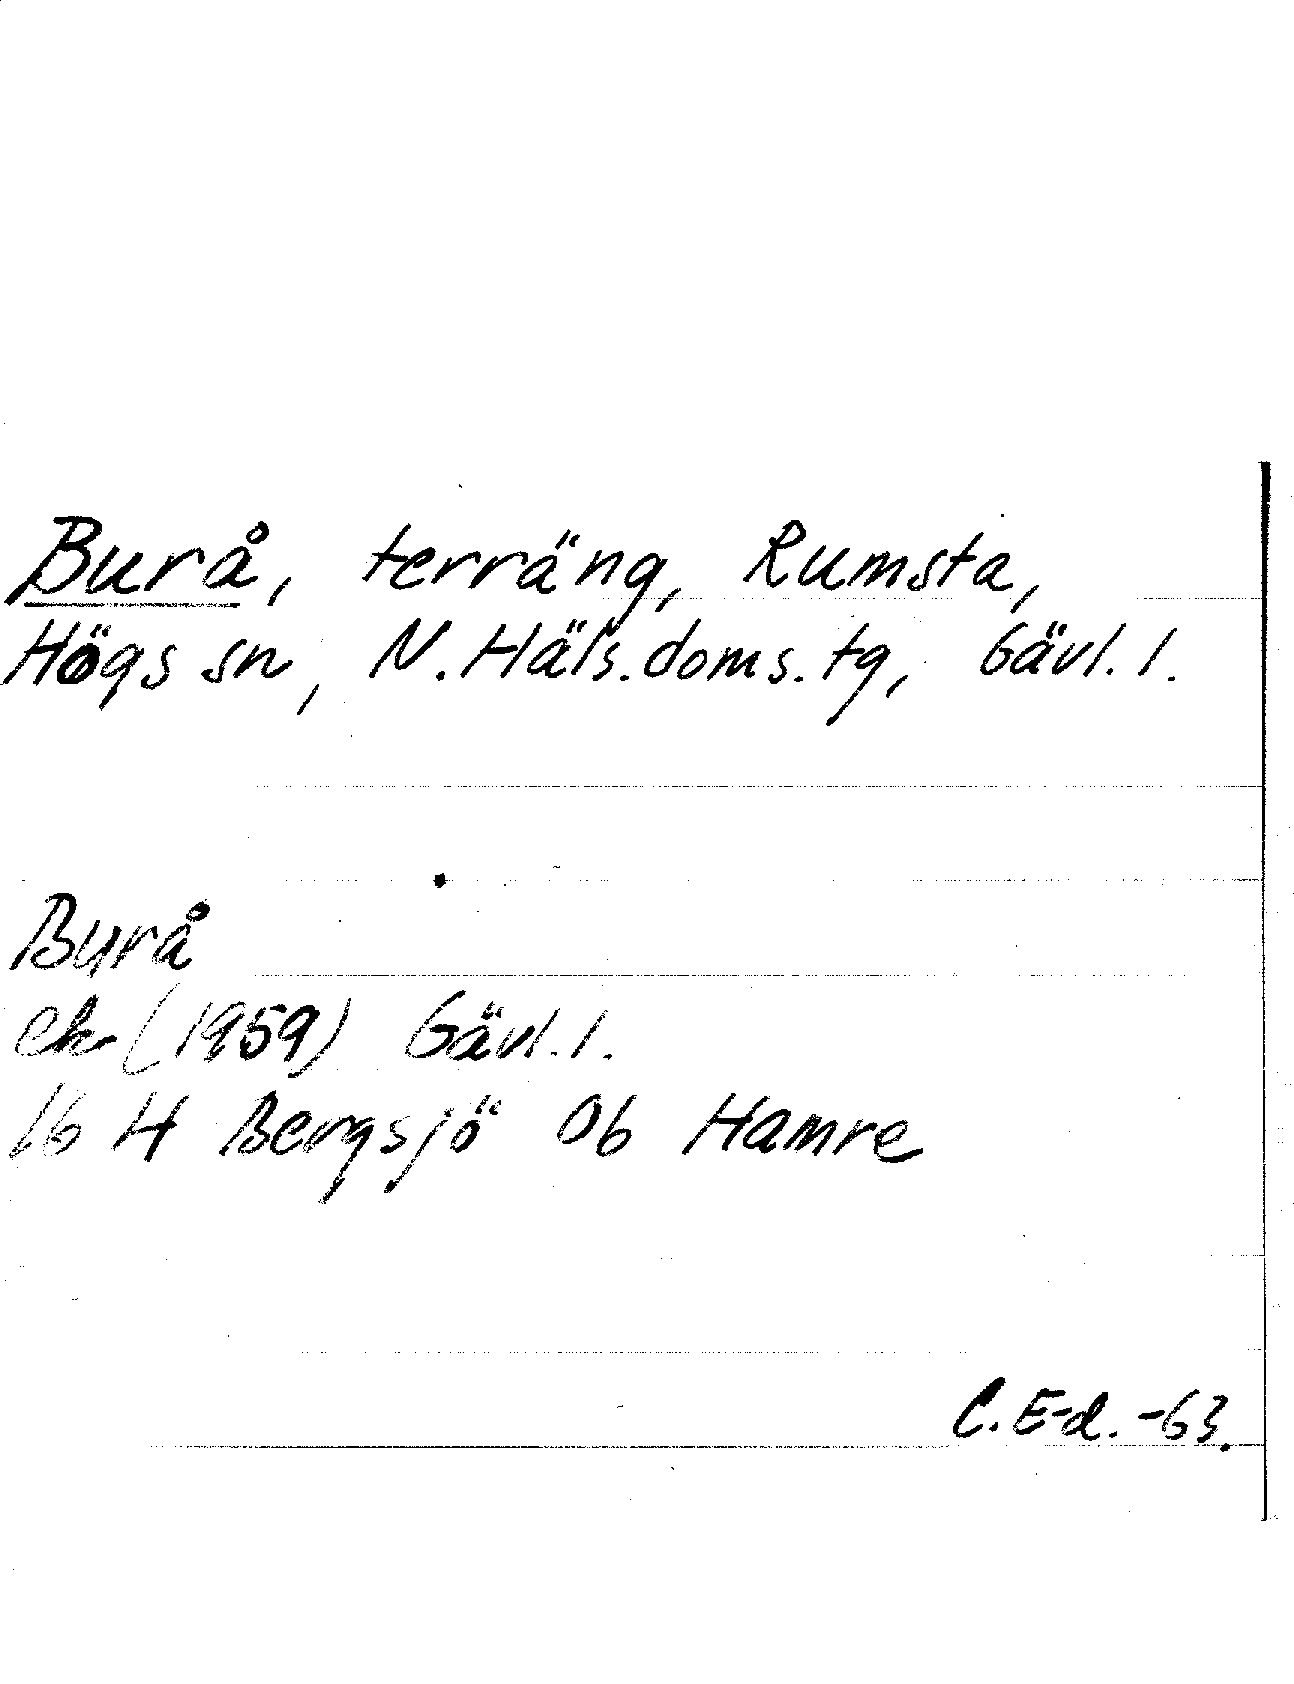 Burå, terräng, Rumsta,
Högs sn, N. Häls. doms. tg, Gävl. l.
Burå
ek (1959) Gävl. l.
16 H Bergsjö Ob Hamre
C. E-d. -63.